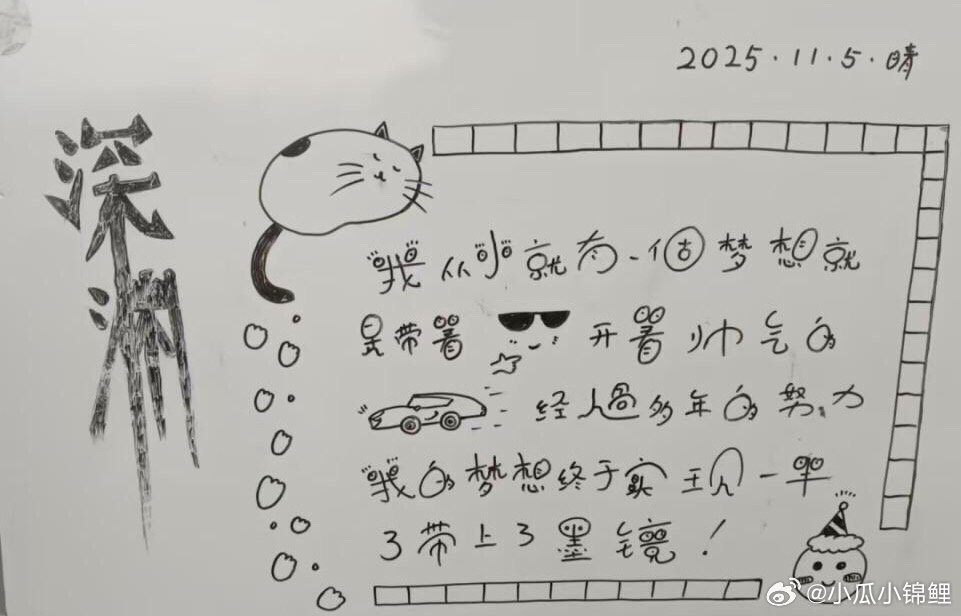 2025.11.5.晴
深渊
我从小就有一个梦想就
是带着
开着帅气的
经过多年的努力
我的梦想终于实现一半
了带上了墨镜!
@小瓜小锦鲤